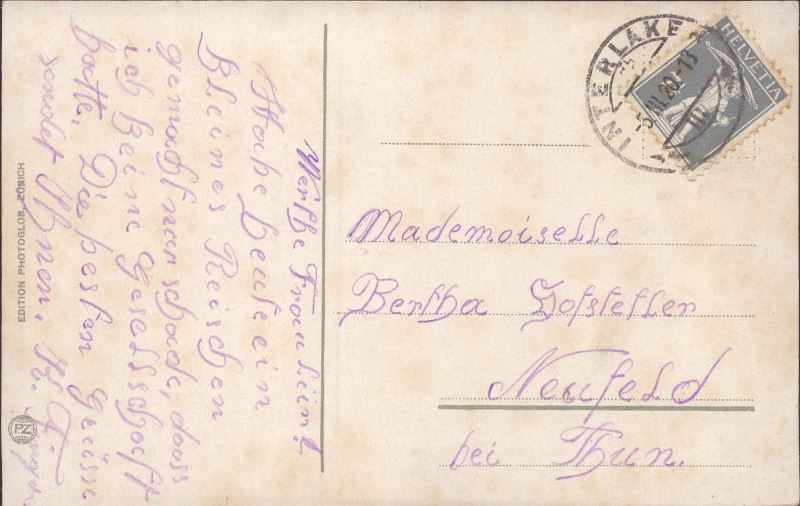 Werthe Fraulein!
Habe heute ein
kleines Reischen
gemacht nur schade, dass
ich keine Gesellschaft
hatte. Die besten Grüsse
sendet Ihnen. H. F.
EDITION PHOTOGLOB, ZÜRICH
PZ
INTERLAKEN
5.III.20-13
HELVETIA
Mademoiselle
Bertha Hofstetter
Neufeld
bei Thun.